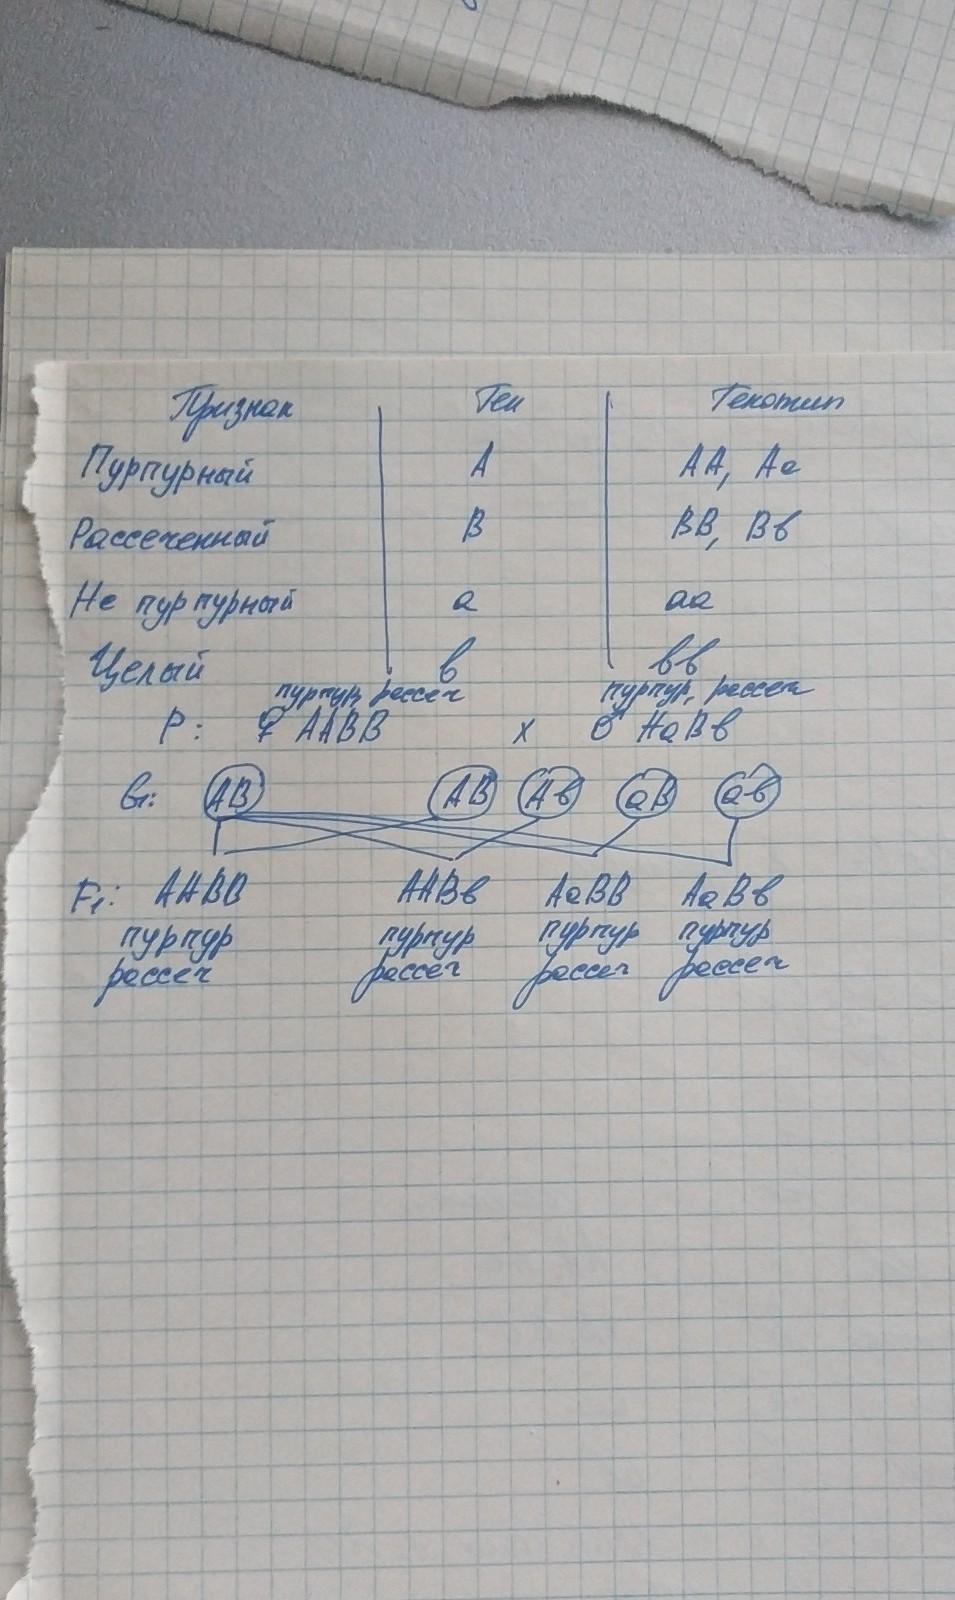 Признак Ген Генотип
Пурпурный А АА, Аа
Рассеченный В ВВ, Вв
Не пурпурный а аа
Целый в вв
пурпур, рассеч пурпур, рассеч
Р: ♀ ААВВ х ♂ АаВв
G: АВ АВ Ав аВ ав
F₁: ААВВ ААВв АаВВ АаВв
пурпур пурпур пурпур пурпур
рассеч рассеч рассеч рассеч